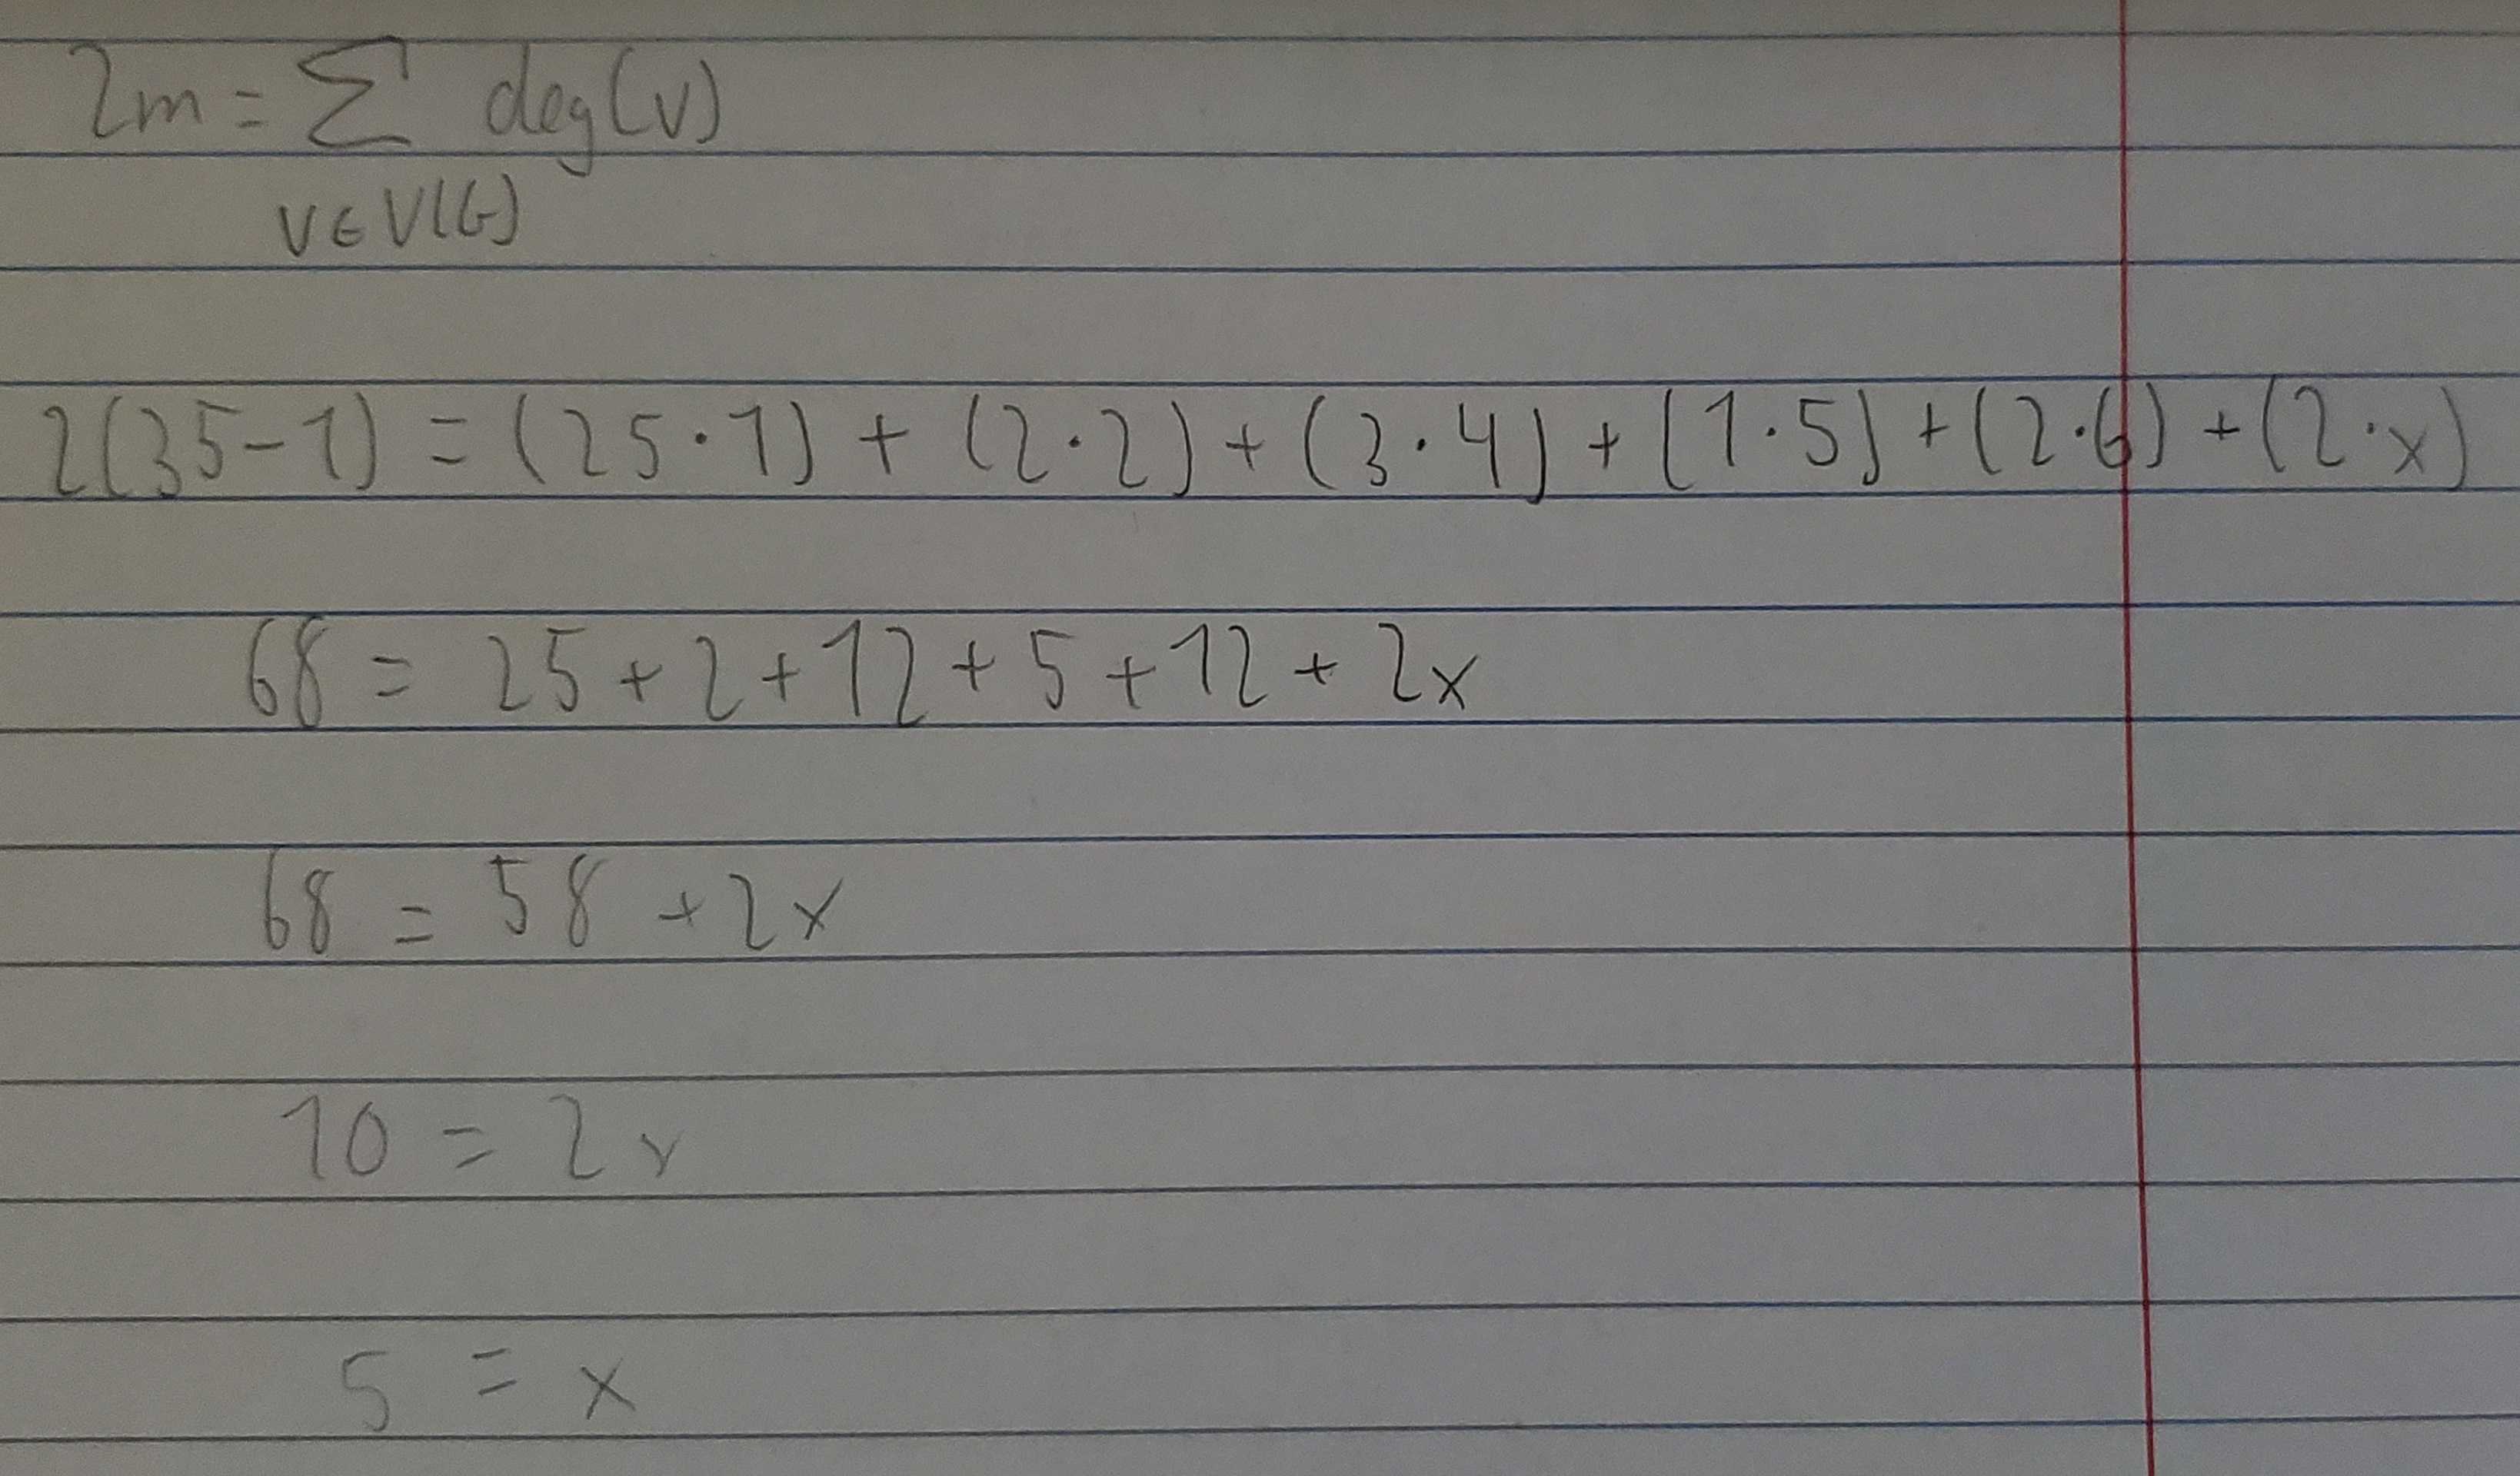 2m = Σ deg(v)
v∈V(G)
2(35-1) = (25·1) + (2·2) + (3·4) + (1·5) + (2·6) + (2·x)
68 = 25 + 2 + 12 + 5 + 12 + 2x
68 = 58 + 2x
10 = 2x
5 = x